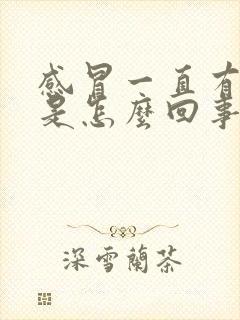 感冒一直有
是怎麼回事
深雪蘭茶